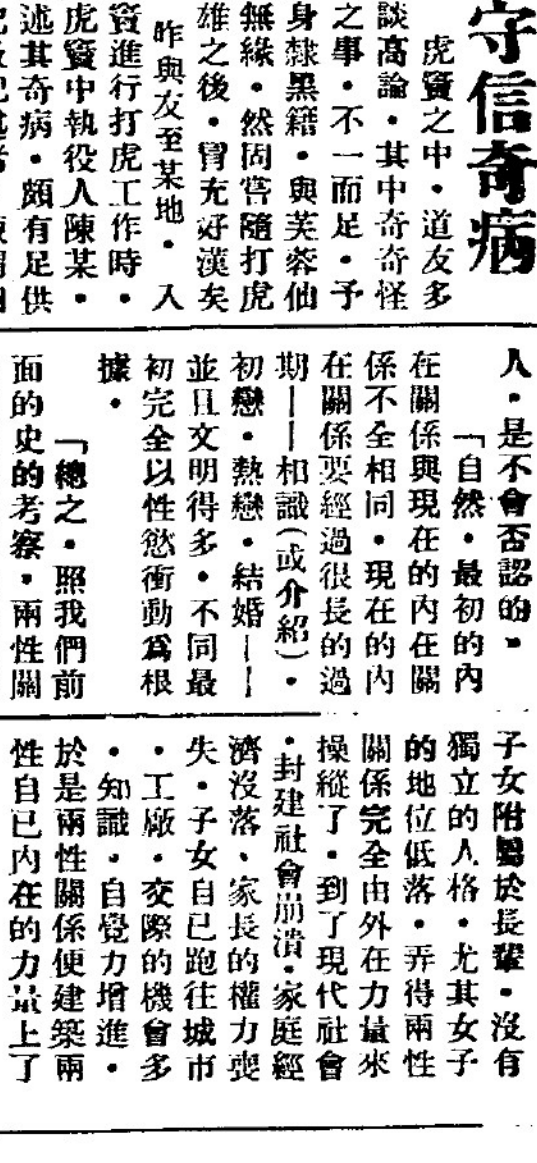 守信奇病
虎竇之中・道友多
談高論・其中奇奇怪
之事・不一而足・予
身隸黑籍・與芙蓉仙
無緣・然固嘗隨打虎
雄之後・冒充好漢矣
昨與友至某地・入
竇進行打虎工作時・
虎竇中執役人陳某・
述其奇病・頗有足供
人・是不會否認的・
「自然・最初的內
在關係與現在的內在關
係不全相同・現在的內
在關係要經過很長的過
期——相識(或介紹)・
初戀・熱戀・結婚——
並且文明得多・不同最
初完全以性慾衝動爲根
據・
「總之・照我們前
面的史的考察・兩性關
子女附屬於長輩・沒有
獨立的人格・尤其女子
的地位低落・弄得兩性
關係完全由外在力量來
操縱了・到了現代社會
・封建社會崩潰・家庭經
濟沒落、家長的權力喪
失・子女自已跑往城市
・工廠・交際的機會多
・知識・自覺力增進・
於是兩性關係便建築兩
性自已內在的力量上了